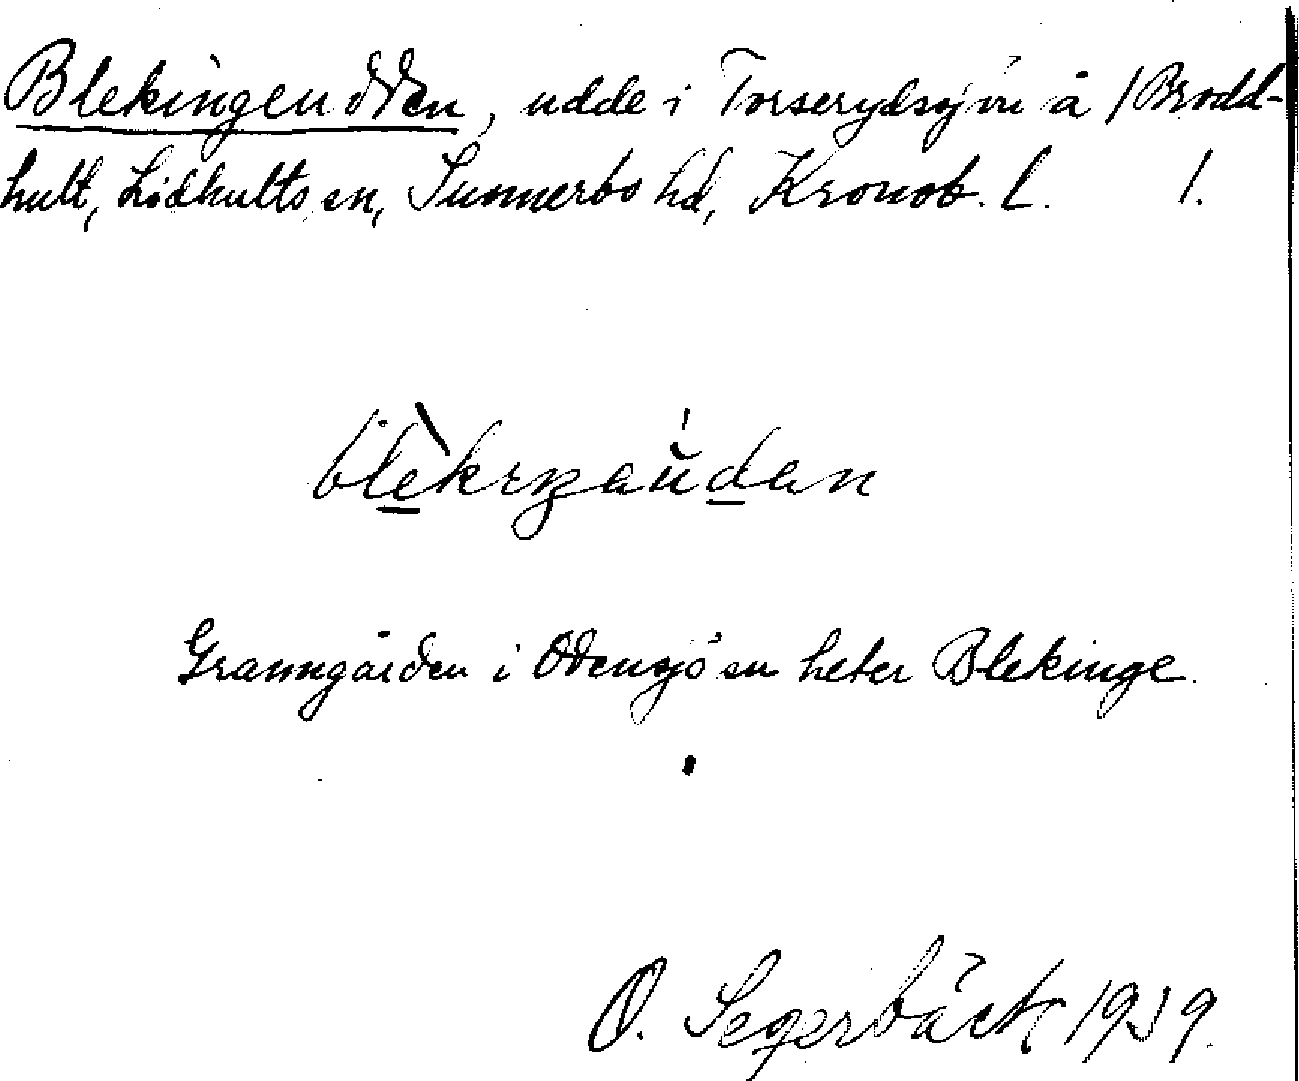 Blekingeudden, udde i Torserydssjön å /Brodd-
hult, Lidhults sn, Sunnerbo hd, Kronob. L. 1.
blèkiŋaùdan
Granngården i Odensjö sn heter Blekinge.
O. Segerbäck 1939.